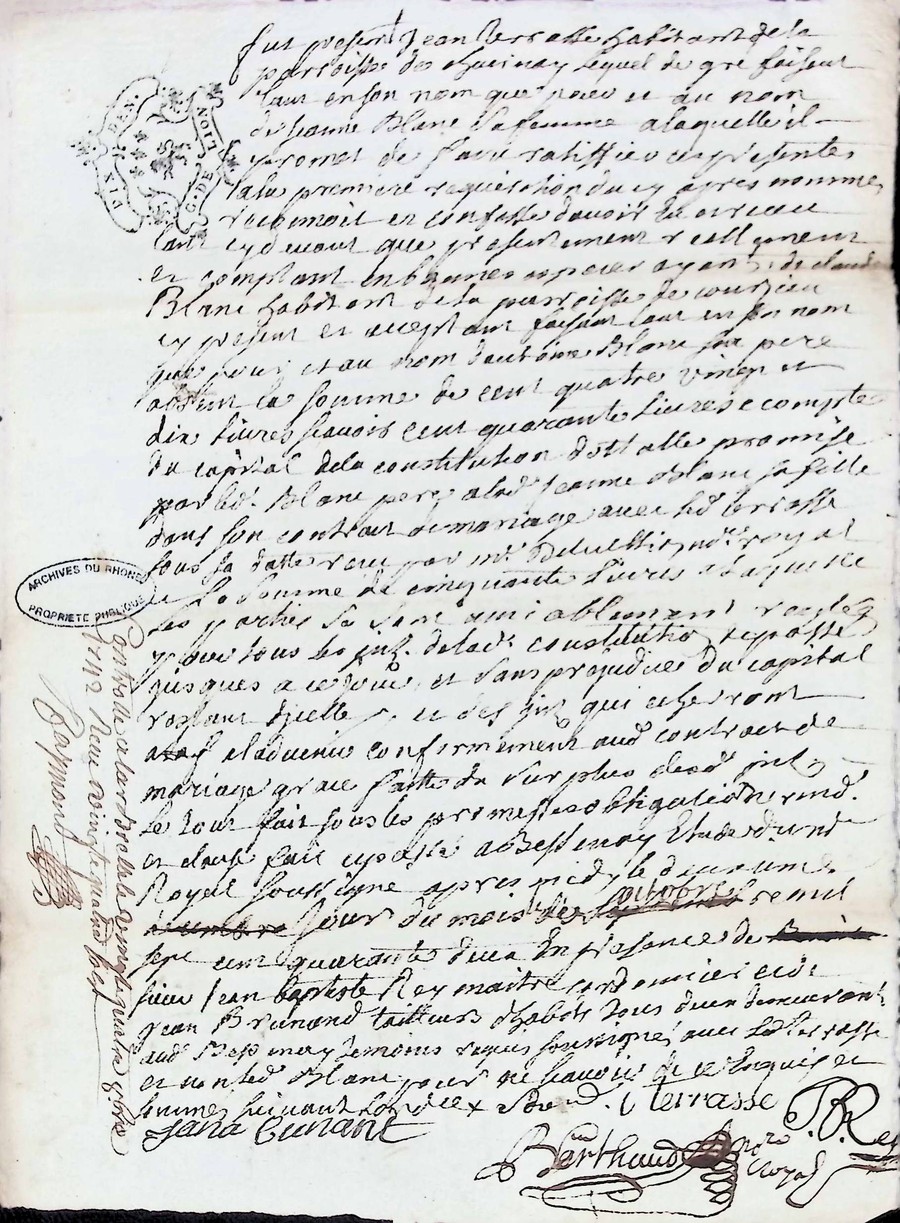 fut present Jean terrasse habitant de la
parroisse de chevinay lequel de gre faisant
tant en son nom que pour et au nom
de Jeanne Blanc sa femme a laquelle il
promet de faire ratiffier ces presentes
a la premiere requisition du cy apres nomme,
reconnoit et confesse d'avoir eu et receu
tant cy devant que presentement reellement
et comptant en bonnes especes ayant de claude
Blanc habitant de la parroisse de courzieu
cy present et acceptant faisant tant en son nom
que pour et au nom d'antoine Blanc son pere
absent la somme de cent quatre vingt et
dix livres scavoir cent quarante livres a compte
du capital de la constitution dottalle promise
par led. Blanc pere a lad. Jeanne Blanc sa fille
dans son contrat de mariage avec led. terrasse
sous sa datte receu par me. nre. royal
et la somme de cinquante livres a laquelle
les parties se sont amiablement reglés
pour tous les int. de lad. constitution a passé
jusques a ce jour, et sans prejudice du capital
restant d'icelle, et des int. qui escherront
a l'advenir conformement aud. contract de
mariage grace faitte du surplus desd. int.
le tout fait sous les promesses obligations rend.
et clause fait et passé a Bessenay Etude du nre
Royal soussigne apres midy le
jour du mois de octobre mil
sept cent quarante deux En presence de
sieur Jean baptiste Rey maitre cordonnier et de
Jean Brunand tailleur d'habits tous deux demeurants
aud. Bessenay temoins requis soussignés avec led. terrasse
et non led. Blanc pour ne scavoir de ce Enquis et
sommé suivant l'ord.
J terrasse
J. B. Rey
Berthaud
nore
Royal
DIX DEN.
G. DE LION
ARCHIVES DU RHÔNE
PROPRIETE PUBLIQUE
Controllé a larbresle le quatre 8bre
1742 Recu vingt quatre sols
Raymond